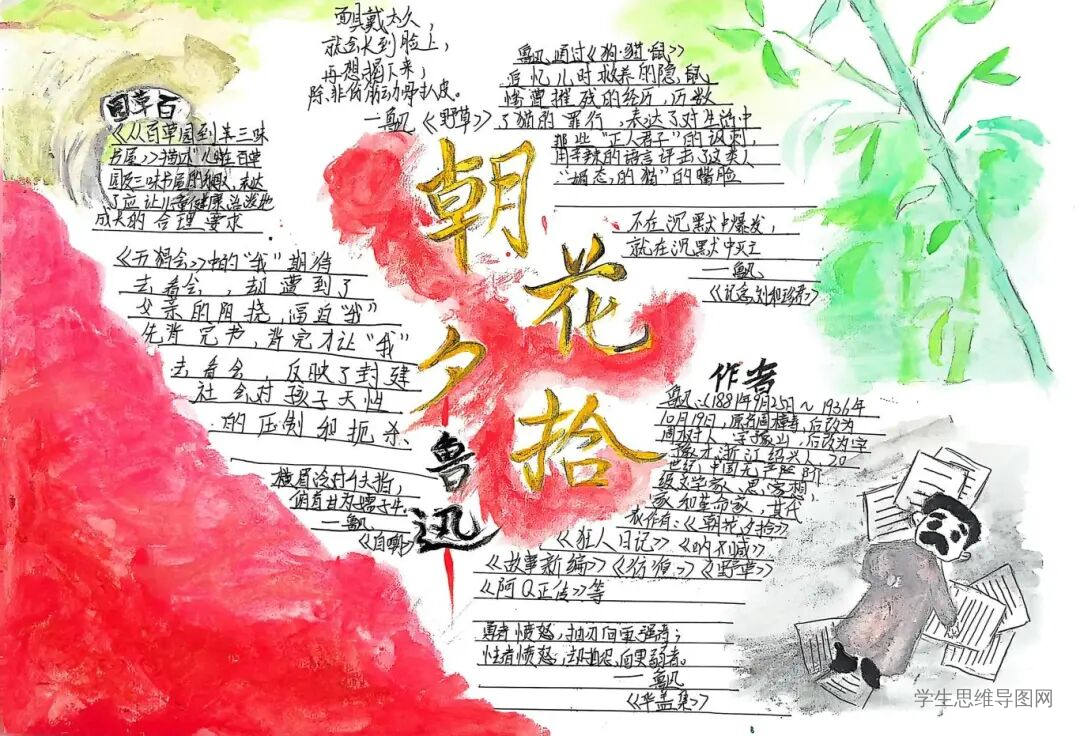 面具戴太久，
就会长到脸上，
再想揭下来，
除非伤筋动骨扒皮。
——鲁迅《野草》
鲁迅通过《狗·猫·鼠》
追忆儿时救养的隐鼠
惨遭摧残的经历，历数
了猫的罪行，表达了对生活中
那些“正人君子”的讽刺，
用辛辣的语言抨击了这类人
“媚态的猫”的嘴脸
园草百
《从百草园到三味
书屋》描述
园及三味书屋的
了应让儿童健康
成长的合理要求
朝
花
夕
拾
鲁
迅
不在沉默中爆发，
就在沉默中灭亡
——鲁迅
《记念刘和珍君》
《五猖会》中的“我”期待
去看会，却遭到了
父亲的阻挠，逼迫“我”
先背完书，背完才让“我”
去看会，反映了封建
社会对孩子天性
的压制和扼杀、
作者
鲁迅（1881年9月25日～1936年
10月19日，原名周樟寿，后改为
周树人，字豫山，后改为字
豫才，浙江绍兴人 20
世纪中国无产阶
级文学家、思想，
家和革命家，其代
表作有：《朝花夕拾》
《狂人日记》《呐喊》
《故事新编》《彷徨》《野草》
《阿Q正传》等
横眉冷对千夫指，
俯首甘为孺子牛
——鲁迅
《自嘲》
勇者愤怒，抽刃向更强者；
怯者愤怒，却抽刃向更弱者。
——鲁迅
《华盖集》
学生思维导图网